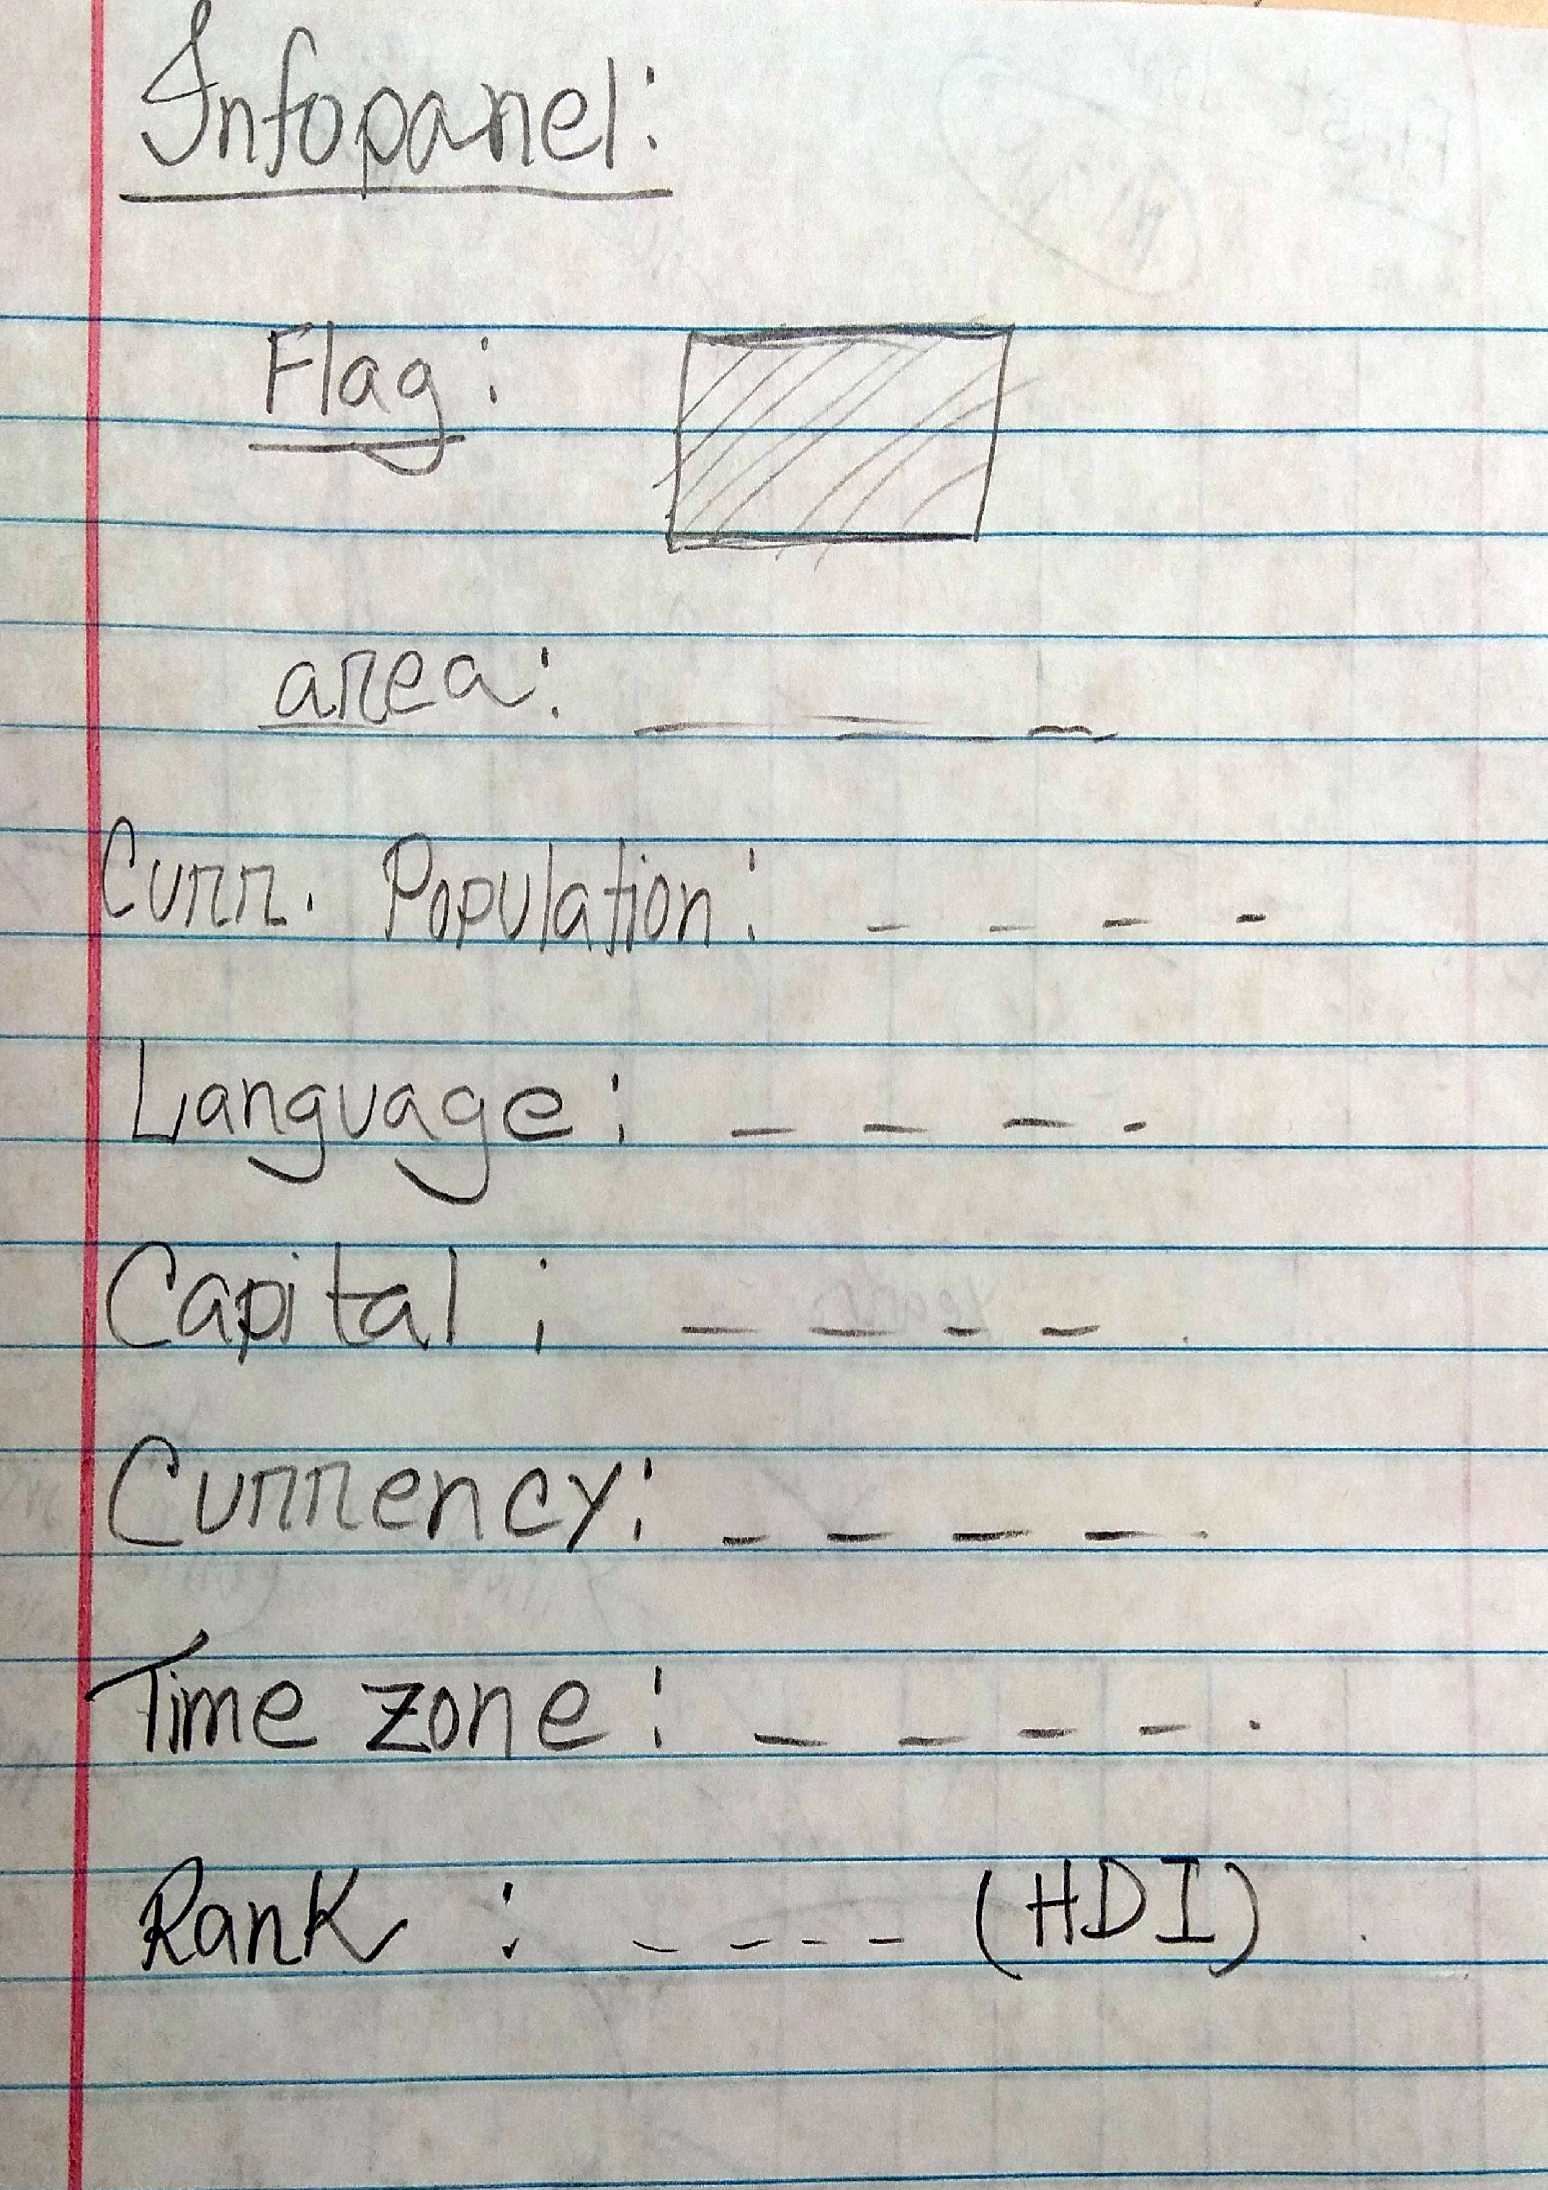 Infopanel:
Flag:
area: _ _ _
Curr. Population: _ _ _ _
Language: _ _ _ _
Capital: _ _ _ _
Currency: _ _ _ _
Time zone: _ _ _ _
Rank : _ _ _ _ (HDI)